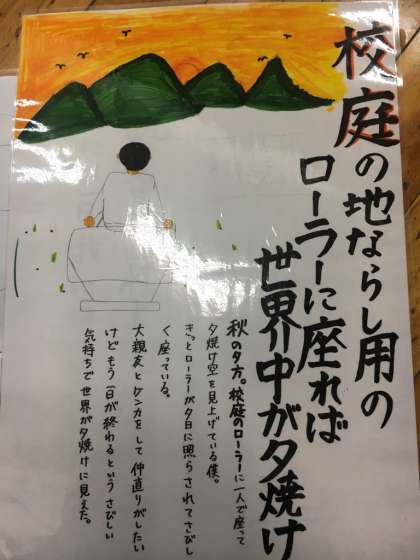 校庭の地ならし用の
ローラーに座れば
世界中が夕焼け
秋の夕方。校庭のローラーに一人で座って
夕焼け空を見上げている僕。
きっとローラーが夕日に照らされてさびし
く座っている。
大親友とケンカをして仲直りがしたい
けどもう一日が終わるというさびしい
気持ちで世界が夕焼けに見えた。